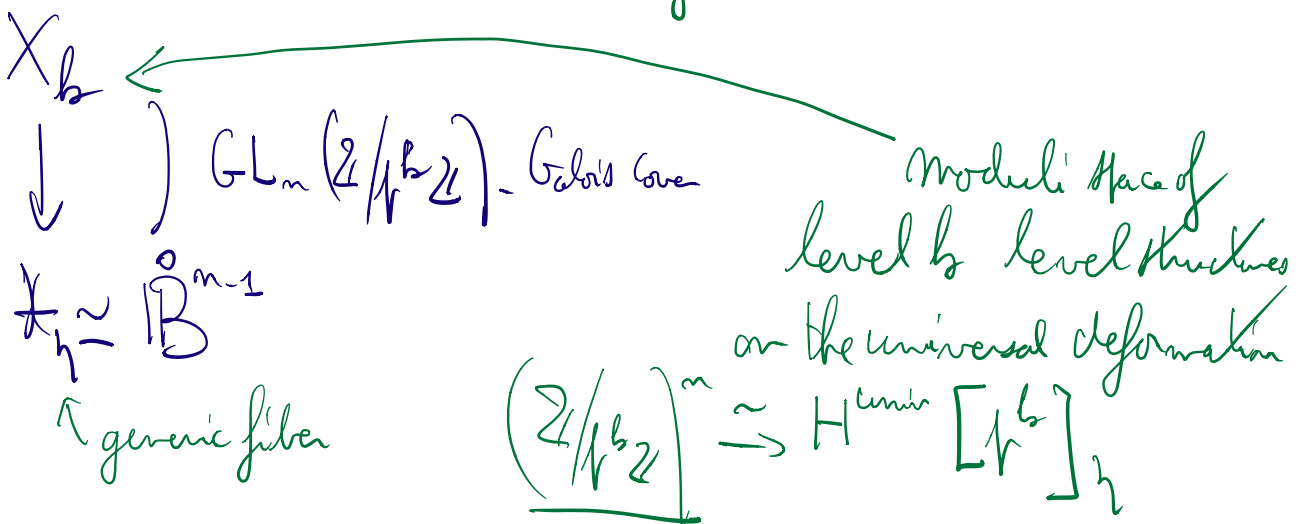 X_k
GL_n (ℤ/p^kℤ) - Galois cover
𝔛_η ≃ 𝔹̊^{n-1}
↑ generic fiber
moduli space of
level k level structures
on the universal deformation
(ℤ/p^kℤ)^n ⥲ H^{univ} [p^k]_η